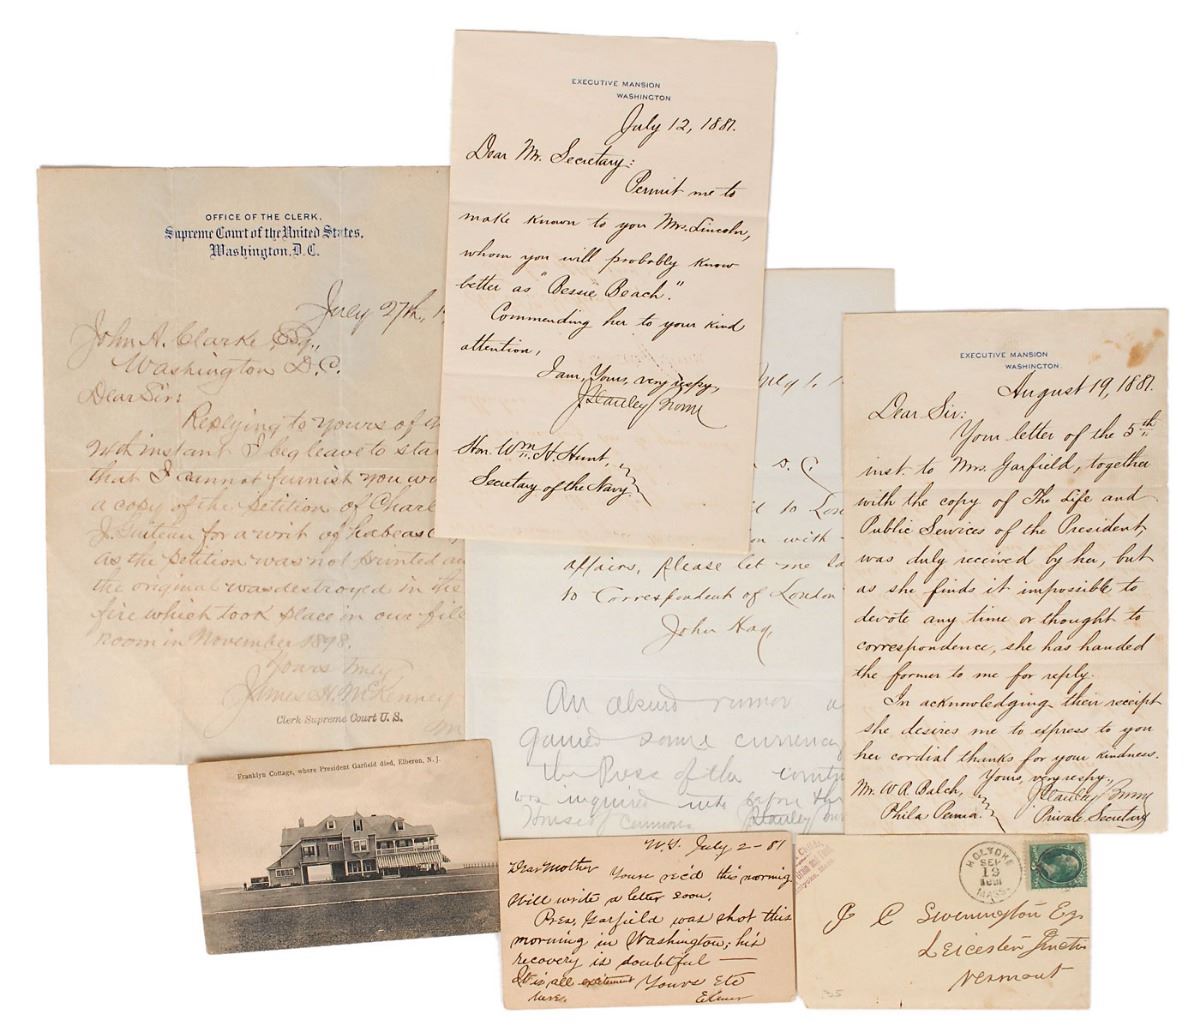 EXECUTIVE MANSION
WASHINGTON
July 12, 1881.
Dear Mr. Secretary:
Permit me to
make known to you Mrs. Lincoln,
whom you will probably know
better as "Bessie Beach."
Commending her to your kind
attention,
I am, Yours, very respy,
J. Stanley Brown
Hon. Wm. H. Hunt,
Secretary of the Navy.
OFFICE OF THE CLERK,
Supreme Court of the United States,
Washington, D.C.
July 27th, 1
John A. Clarke Esq.,
Washington D.C.
Dear Sir:
Replying to yours of
instant I beg leave to sta
that I cannot furnish you
a copy of the petition of Charl
J. Guiteau for a writ of habeas
as the petition was not printed
the original was destroyed in the
fire which took place in our file
room in November 1898.
Yours truly
James H. McKenney
Clerk Supreme Court U. S.
July 1,
D. C.
to Lon
with
affairs, please let me
to Correspondent of London
John Hay,
An absurd rumor
gained some currency
the Press of the
was inquired into before the
House of Commons
J Stanley
EXECUTIVE MANSION
WASHINGTON.
August 19, 1881.
Dear Sir:
Your letter of the 5th
inst. to Mrs. Garfield, together
with the copy of The Life and
Public Services of the President,
was duly received by her, but
as she finds it impossible to
devote any time or thought to
correspondence, she has handed
the former to me for reply.
In acknowledging their receipt
she desires me to express to you
her cordial thanks for your kindness.
Yours, very respy.,
J. Stanley Brown
Private Secretary
Mr. W. R. Balch,
Phila Penna.
Franklyn Cottage, where President Garfield died, Elberon, N. J.
July 2-81
Dear Mother Yours rec'd this morning
Will write a letter soon.
Pres. Garfield was shot this
morning in Washington; his
recovery is doubtful —
It is all excitement Yours Etc
here. Elmer
HOLYOKE
SEP
19
1881
MASS.
J C Swennington Esq
Leicester Junction
Vermont